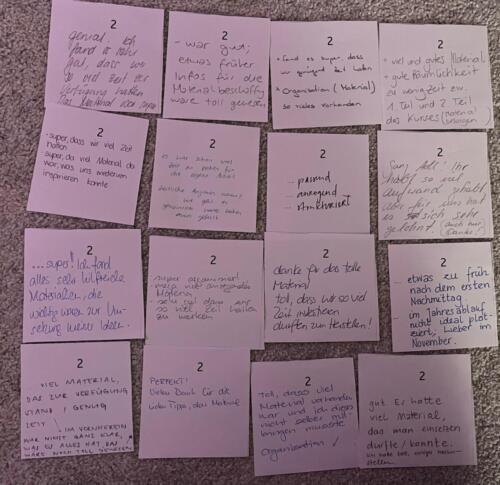 2
genial. Ich
fand es sehr
gut, dass wir
so viel Zeit zur
Verfügung hatten
Das Material war super
2
- war gut;
etwas früher
Infos für die
Materialbeschaffg
wäre toll gewesen
2
• fand es super, dass
wir genügend Zeit hatten
• Organisation (Material)
so vieles vorhanden
2
+ viel und gutes Material
+ gute Räumlichkeit
± zu wenig Zeit zw.
1. Teil und 2. Teil
des Kurses (Material
besorgen)
2
- super, dass wir viel Zeit
hatten
- super, da viel Material da
war, was uns wiederum
inspirieren konnte
2
es war schön viel
Zeit zu haben für
die eigene Arbeit
2
... passend
... anregend
... strukturiert
2
Ganz toll! Ihr
habt so viel
Aufwand gehabt
aber für uns hat
es sich sehr
gelohnt (auch nur:
Danke!)
2
...super! Ich fand
alles sehr hilfreiche
Materialien, die
wichtig waren zur Um-
setzung meiner Ideen.
2
super organisiert!
- mega viel
Material
- sehr gut dass wir
so viel Zeit hatten
zu werken
2
danke für das tolle
Material
toll, dass wir so viel
Zeit investieren
durften zum Herstellen!
2
... etwas zu früh
nach dem ersten
Nachmittag
... im Jahresablauf
nicht ideal plat-
ziert, lieber im
November.
2
VIEL MATERIAL,
DAS ZUR VERFÜGUNG
STAND! GENUG
ZEIT
IM VORNHEREIN
WAR NICHT GANZ KLAR,
WAS ES ALLES HAT, DAS
WÄRE NOCH TOLL GEWESEN
2
PERFEKT!
Vielen Dank für die
vielen Tipps, das Material
2
Toll, dass viel
Material vorhanden
war und ich dies
nicht selber mit-
bringen musste.
Organisation ✓
2
gut. Es hatte
viel Material,
das man einsetzen
durfte / konnte.